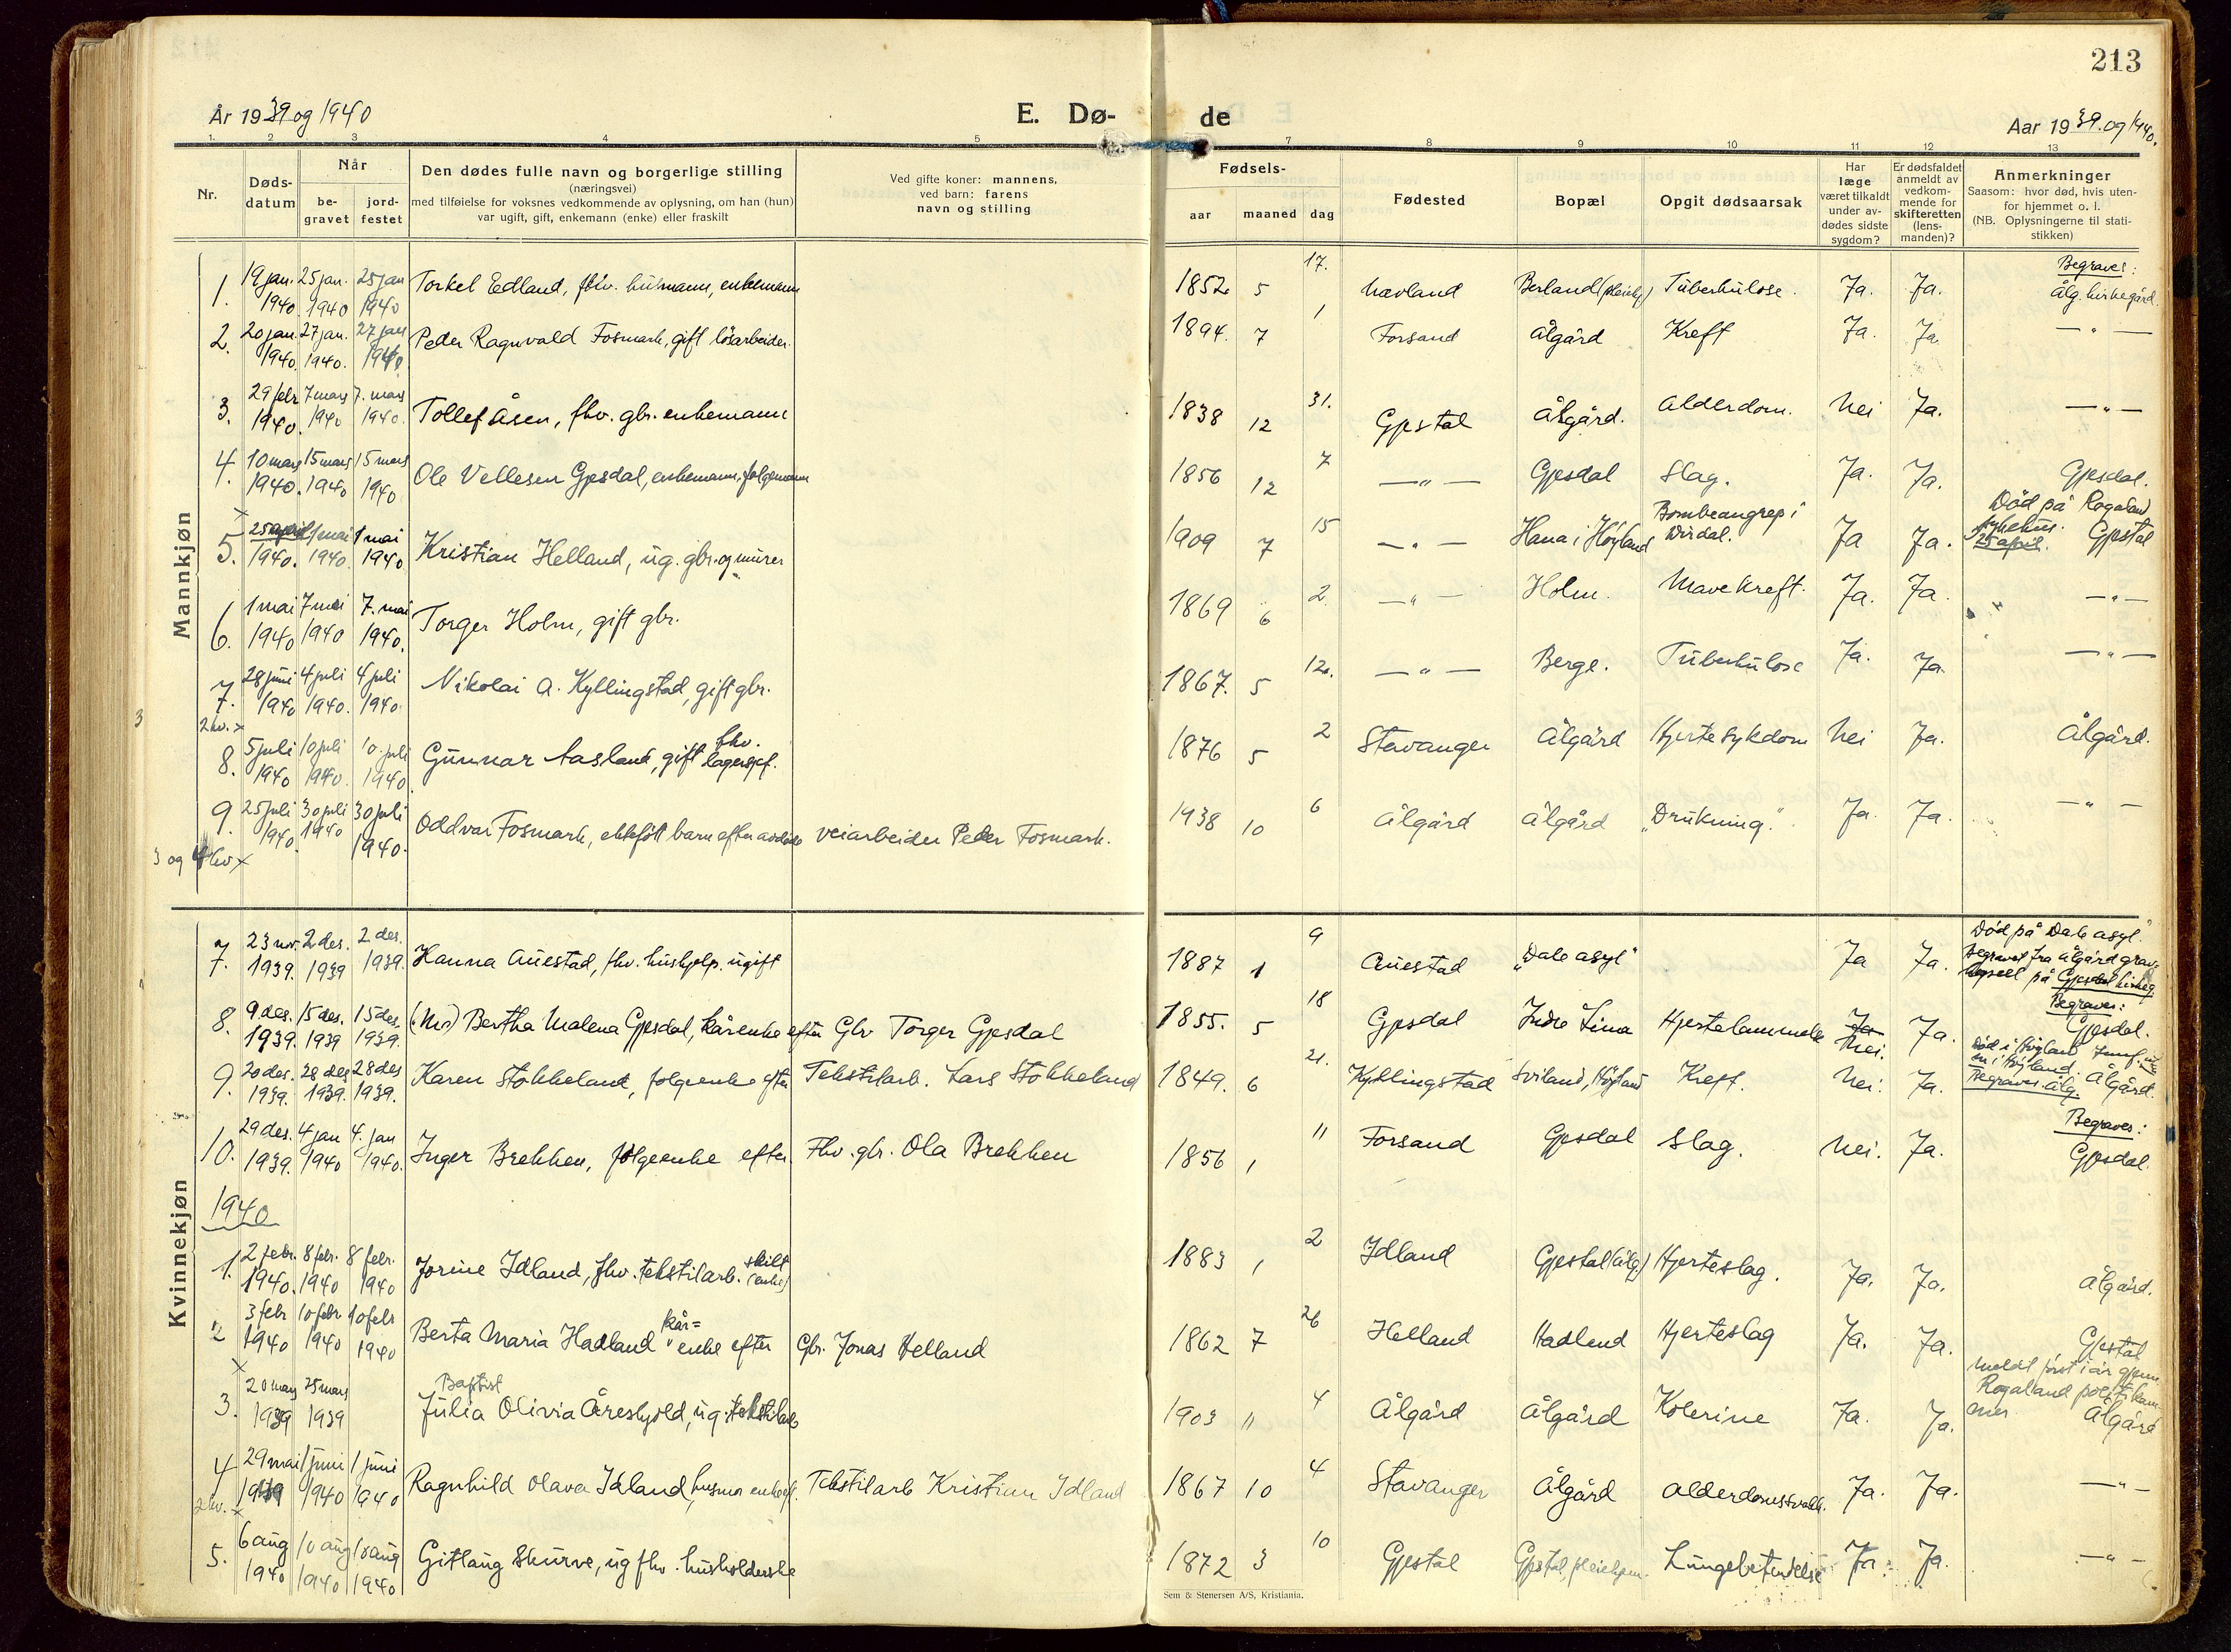 213
År 1939 og 1940
E. Dø-
de
Aar 1939. og 1940.
1 2 3 4 5 7 8 9 10 11 12 13
Nr.
Døds-
datum
Når
be-
gravet
jord-
festet
Den dødes fulle navn og borgerlige stilling
(næringsvei)
med tilføielse for voksnes vedkommende av oplysning, om han (hun)
var ugift, gift, enkemann (enke) eller fraskilt
Ved gifte koner: mannens,
ved barn: farens
navn og stilling
Fødsels-
aar maaned dag
Fødested
Bopæl
Opgit dødsaarsak
Har
læge
været tilkaldt
under av-
dødes sidste
sygdom?
Er dødsfaldet
anmeldt av
vedkom-
mende for
skifteretten
(lens-
manden)?
Anmerkninger
Saasom: hvor død, hvis uten-
for hjemmet o. l.
(NB. Oplysningerne til stati-
stikken)
Mannkjøn
1. 19 jan. 1940. 25 jan. 1940 25 jan 1940 Torkel Edland, fhv. husmann, enkemann 1852 5 17. Nævland Berland (pleiehj) Tuberkulose. Ja. Ja. Begraves: Ålg. kirkegård.
2. 20 jan. 1940. 27 jan. 1940. 27 jan 1940. Peder Ragnvald Fosmark, gift løsarbeider. 1894. 7 1 Forsand Ålgård Kreft Ja. Ja. — " —
3. 29 febr 1940. 7 mars 1940 7. mars 1940. Tollef Åsen, fhv. gbr. enkemann 1838 12 31. Gjestal Ålgård. Alderdom. Nei Ja. — " —
4. 10 mars 1940. 15 mars 1940 15 mars 1940 Ole Vellesen Gjesdal, enkemann, følgemann 1856 12 7 — " — Gjesdal Slag. Ja. Ja. Gjesdal.
5. 25 april 1940. 1 mai 1940. 1 mai 1940 Kristian Helland, ug. gbr. og murer 1909 7 15 — " — Hana i Høyland Bombeangrep i Dirdal. Ja Ja. Død på Rogaland sykehus. 25 april. Gjestal
6. 1 mai 1940 7 mai 1940 7. mai 1940. Torger Holm, gift gbr. 1869 6 2. — " — Holm. Mavekreft. Ja. Ja. — " —
7. 28 juni 1940 4 juli 1940. 4 juli 1940. Nikolai A. Kyllingstad, gift gbr. 1867. 5 12. — " — Berge. Tuberkulose Ja. Ja. — " —
2 kv. x
8. 5 juli 1940 10 juli 1940. 10. juli 1940 Gunnar Aasland, gift fhv. lagersjef. 1876 5 2 Stavanger Ålgård Hjertesykdom Nei Ja. Ålgård.
9. 25 juli 1940. 30 juli 1940 30 juli 1940. Oddvar Fosmark, ektefött barn efter avdøde veiarbeider Peder Fosmark. 1938 10 6 Ålgård Ålgård "Drukning." Ja. Ja. — " —
3 og 4 kv x
Kvinnekjøn
7. 23 nov. 1939. 2 des. 1939 2 des. 1939. Hanna Auestad, fhv. hushjelp. ugift 1887 1 9 Auestad "Dale asyl" Ja Ja. Død på "Dale asyl." Begravet fra Ålgård gravkapell på Gjesdal kirkeg.
8. 9. des. 1939. 15 des. 1939 15 des. 1939. Bertha Malena Gjesdal, kårenke efter Gbr Torger Gjesdal 1855. 5 18 Gjesdal Indre Lima Hjertelammelse Ja Nei. Ja. Begraves: Gjesdal.
9. 20 des. 1939. 28 des 1939. 28 des 1939. Karen Stokkeland, følgeenke efter Tekstilarb. Lars Stokkeland 1849. 6 21. Kyllingstad Sviland, Høyland Kreft. Nei. Ja. Død i Høyland. Begraves Ålg. Ålgård.
10. 29 des. 1939. 4 jan 1940 4. jan 1940. Inger Brekken, følgeenke efter Fhv. gbr. Ola Brekken 1856 1 11 Forsand Gjesdal Slag. Nei. Ja. Begraves: Gjesdal.
1940
1. 2 febr. 1940. 8 febr. 1940 8 febr. 1940 Jorine Idland, fhv. tekstilarb. skilt (enke) 1883 1 2 Idland Gjestal (Ålg) Hjerteslag. Ja. Ja. Ålgård.
2 3 febr 1940 10 febr 1940 10 febr 1940 Berta Maria Hadland kår= enke efter Gbr. Jonas Helland 1862 7 26 Helland Hadland Hjerteslag Ja. Ja. Gjestal
3. 20 mars 1939 25 mars 1939 Baptist Julia Olivia Åreskjold, ug. tekstilarb 1903 11 4 Ålgård Ålgård Kolerine Ja. Ja. Meldt först i år gjenn. Rogaland politikammer. Ålgård
4 29 mai 1939 1 juni 1940 1 juni 1940 Ragnhild Olava Idland, husmor enke ef. Tekstilarb Kristian Idland 1867 10 4 Stavanger Ålgård Alderdomssvakh. Ja. Ja. — " —
2 kv. x
5. 6 aug 1940 10 aug 1940 10 aug 1940 Gitlaug Skurve, ug fhv. husholderske 1872 3 10 Gjestal Gjestal, pleiehjem. Lungebetendelse Ja. Ja. — " —
Sem & Stenersen A/S, Kristiania.